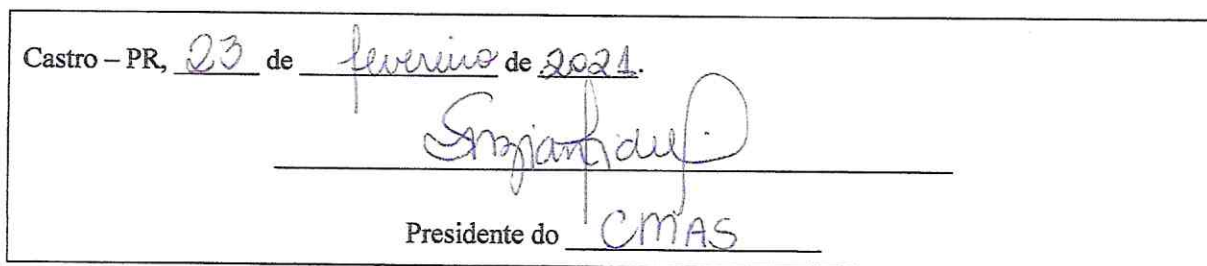 Castro – PR, 23 de fevereiro de 2021.
Presidente do CMAS